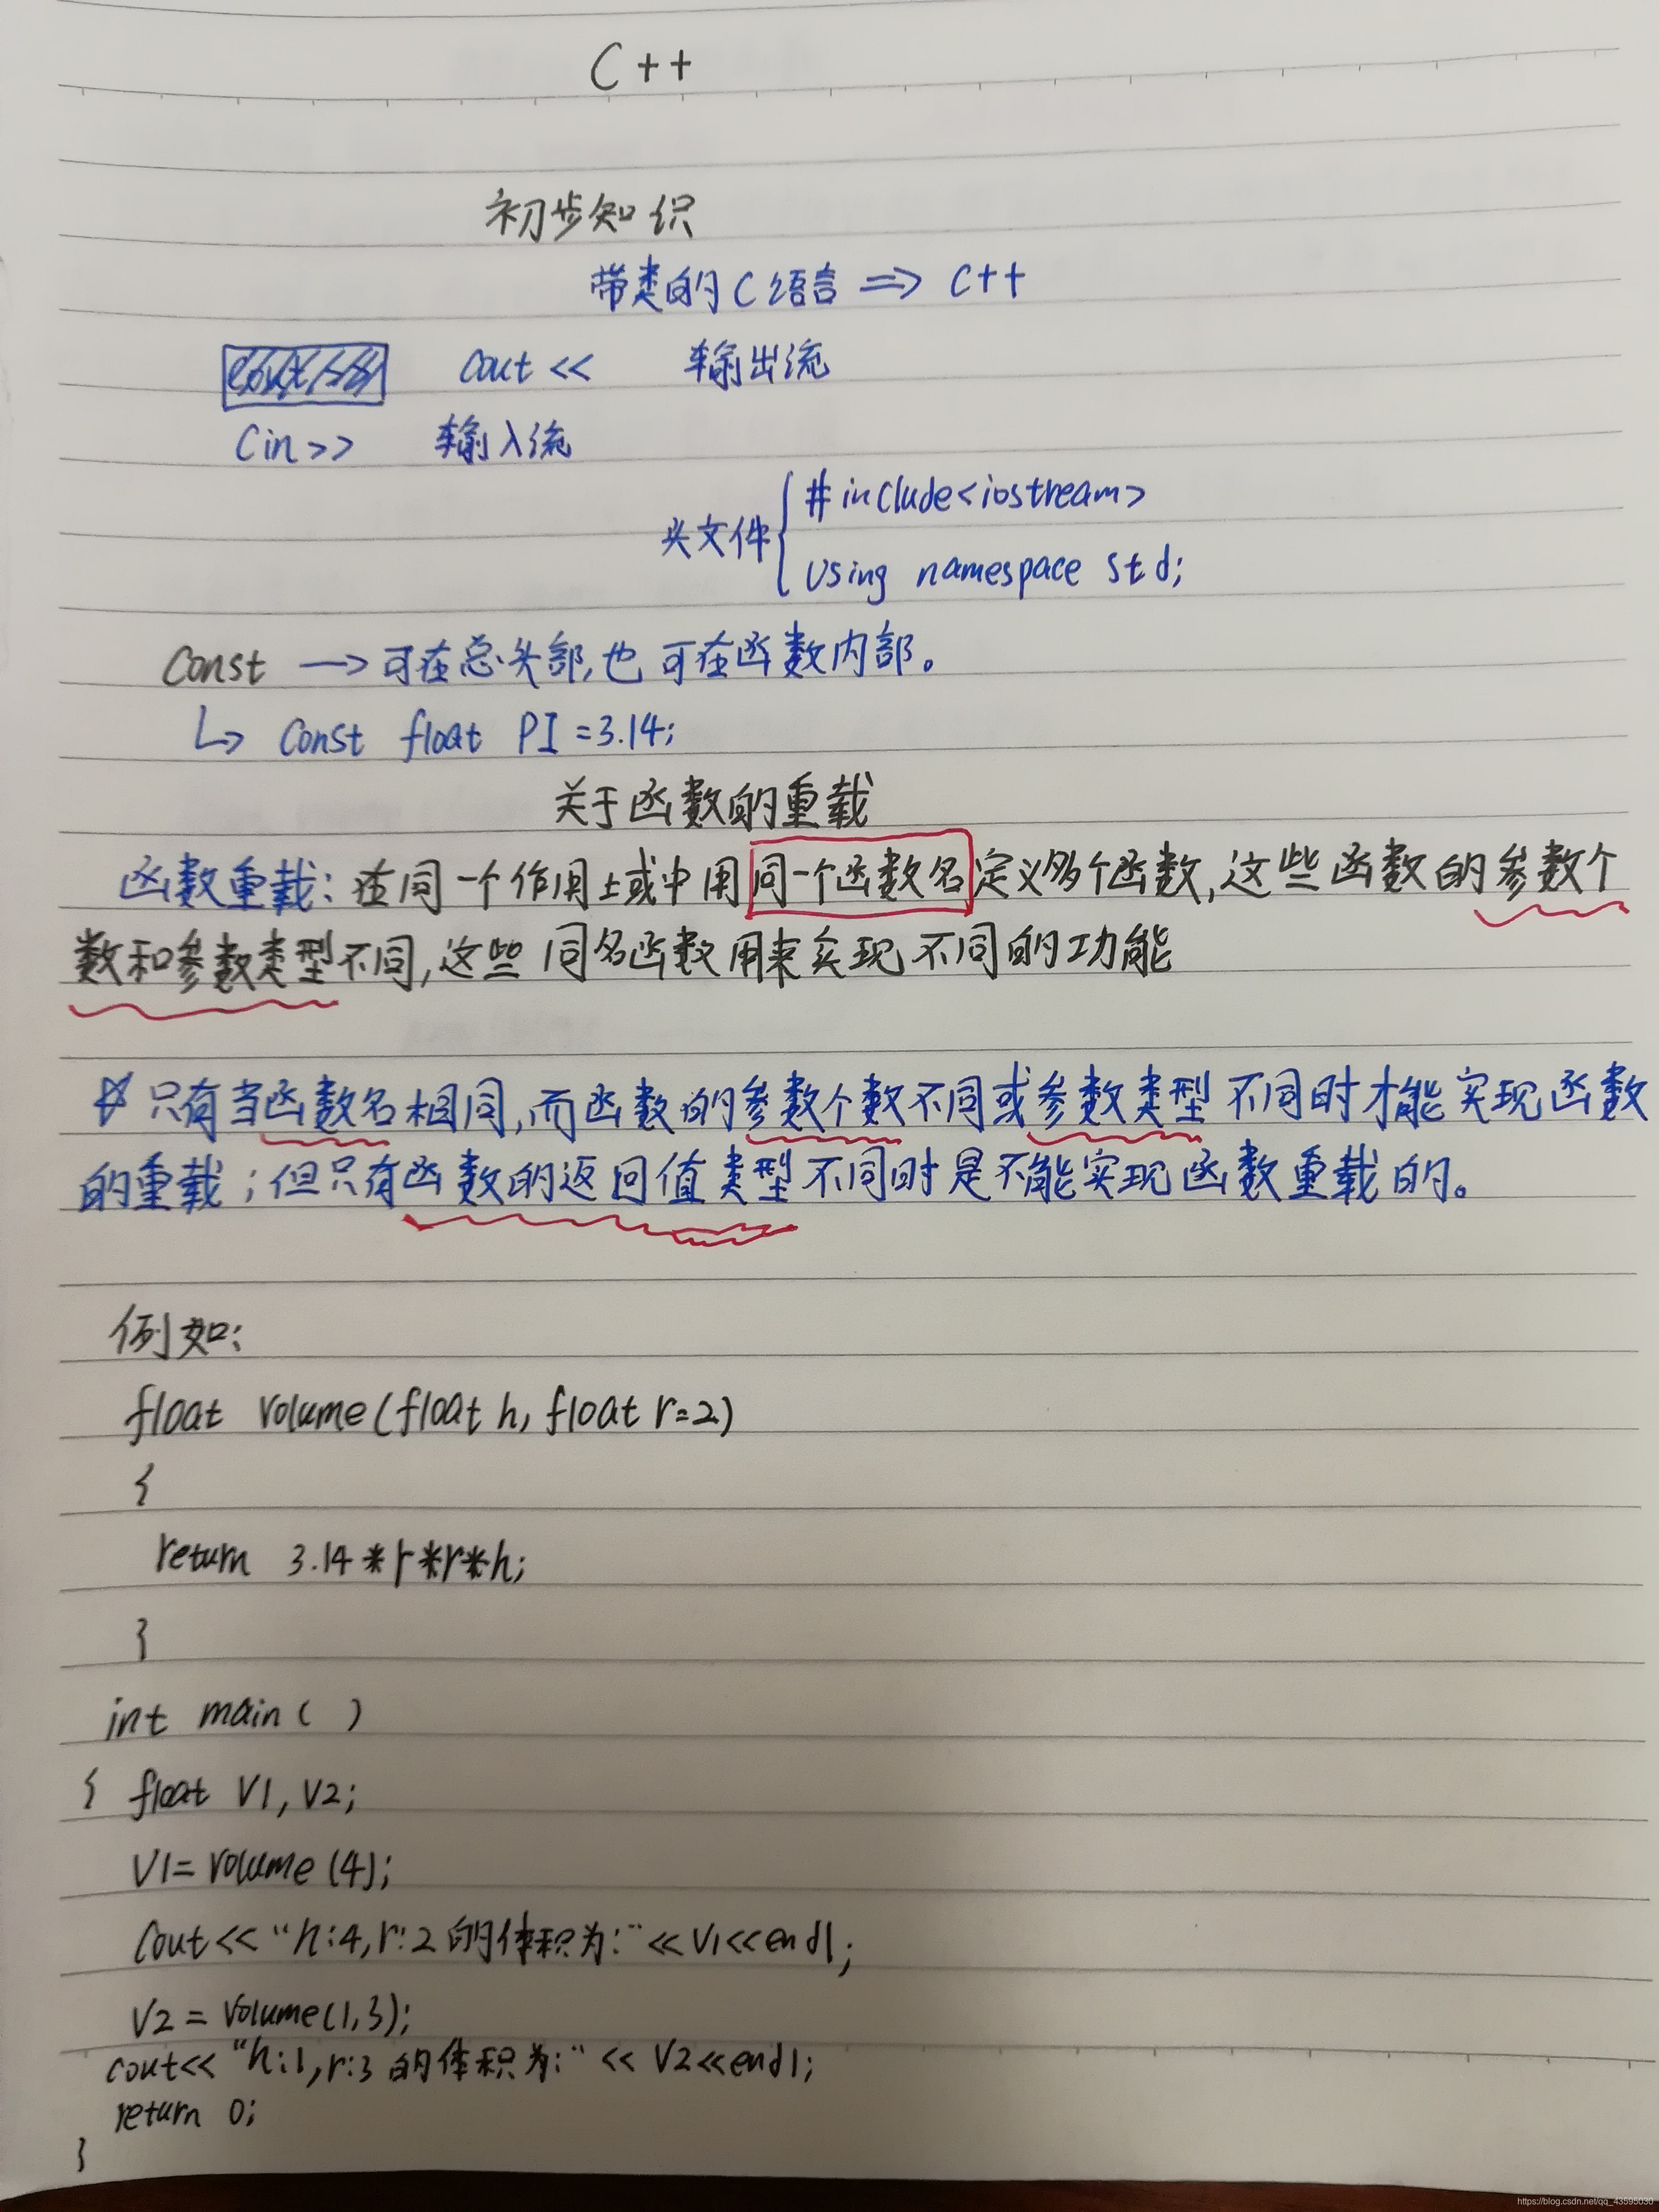 C++
初步知识
带类的C语言 => C++
cout << 输出流
Cin>> 输入流
头文件 { #include<iostream>
using namespace std;
Const → 可在总头部,也可在函数内部。
↳ Const float PI=3.14;
关于函数的重载
函数重载:在同一个作用土或中用同一个函数名定义多个函数,这些函数的参数个
数和参数类型不同,这些同名函数用来实现不同的功能
☆只有当函数名相同,而函数的参数个数不同或参数类型不同时才能实现函数
的重载;但只有函数的返回值类型不同时是不能实现函数重载的。
例如:
float volume(float h, float r=2)
{
return 3.14*r*r*h;
}
int main( )
{ float V1, V2;
V1=volume(4);
Cout<<"h:4,r:2的体积为:"<<V1<<endl;
V2=volume(1,3);
cout<<"h:1,r:3的体积为:"<<V2<<endl;
return 0;
}
https://blog.csdn.net/qq_43595030